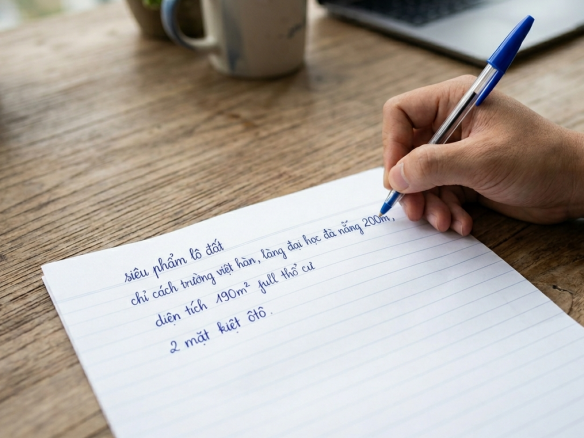 siêu phẩm lô đất
chỉ cách trường việt hàn, làng đại học đà nẵng 200m,
diện tích 190m² full thổ cư
2 mặt kiệt ôtô.